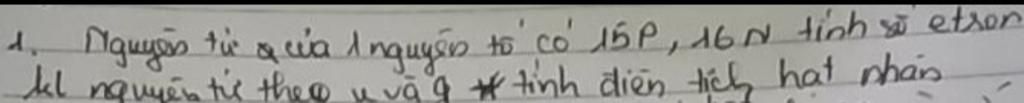 1. Nguyên tử của 1 nguyên tố có 15P, 16N tính số etron
kl nguyên tử theo u và g tính diện tích hạt nhân